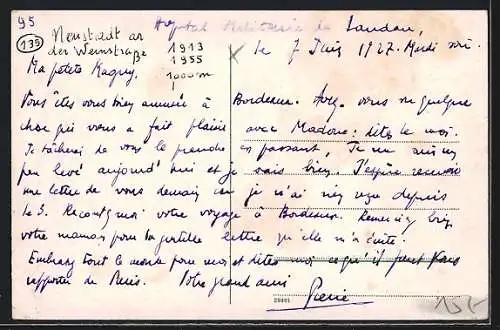 95
Hopital Militaire de Landau,
139
Neustadt an
der Weinstraße
1913
1955
1000 m
le 7 Juin 1927. Mardi soir.
Ma petite Maguy,
Vous êtes vous bien amusée à Bordeaux. Avez-vous vu quelque
chose qui vous a fait plaisir avec Madone: dites le moi.
Je tâcherai de vous le prendre en passant, Je me suis un
peu levé aujourd'hui et je vais bien. J'espère recevoir
une lettre de vous demain car je n'ai rien reçu depuis
le 3. Racontez moi votre voyage à Bordeaux. Remerciez bien
votre maman pour la gentille lettre qu'elle m'a écrite.
Embrassez tout le monde pour moi et dites moi ce qu'il faut vous
rapporter de Paris. Votre grand ami
Pierre